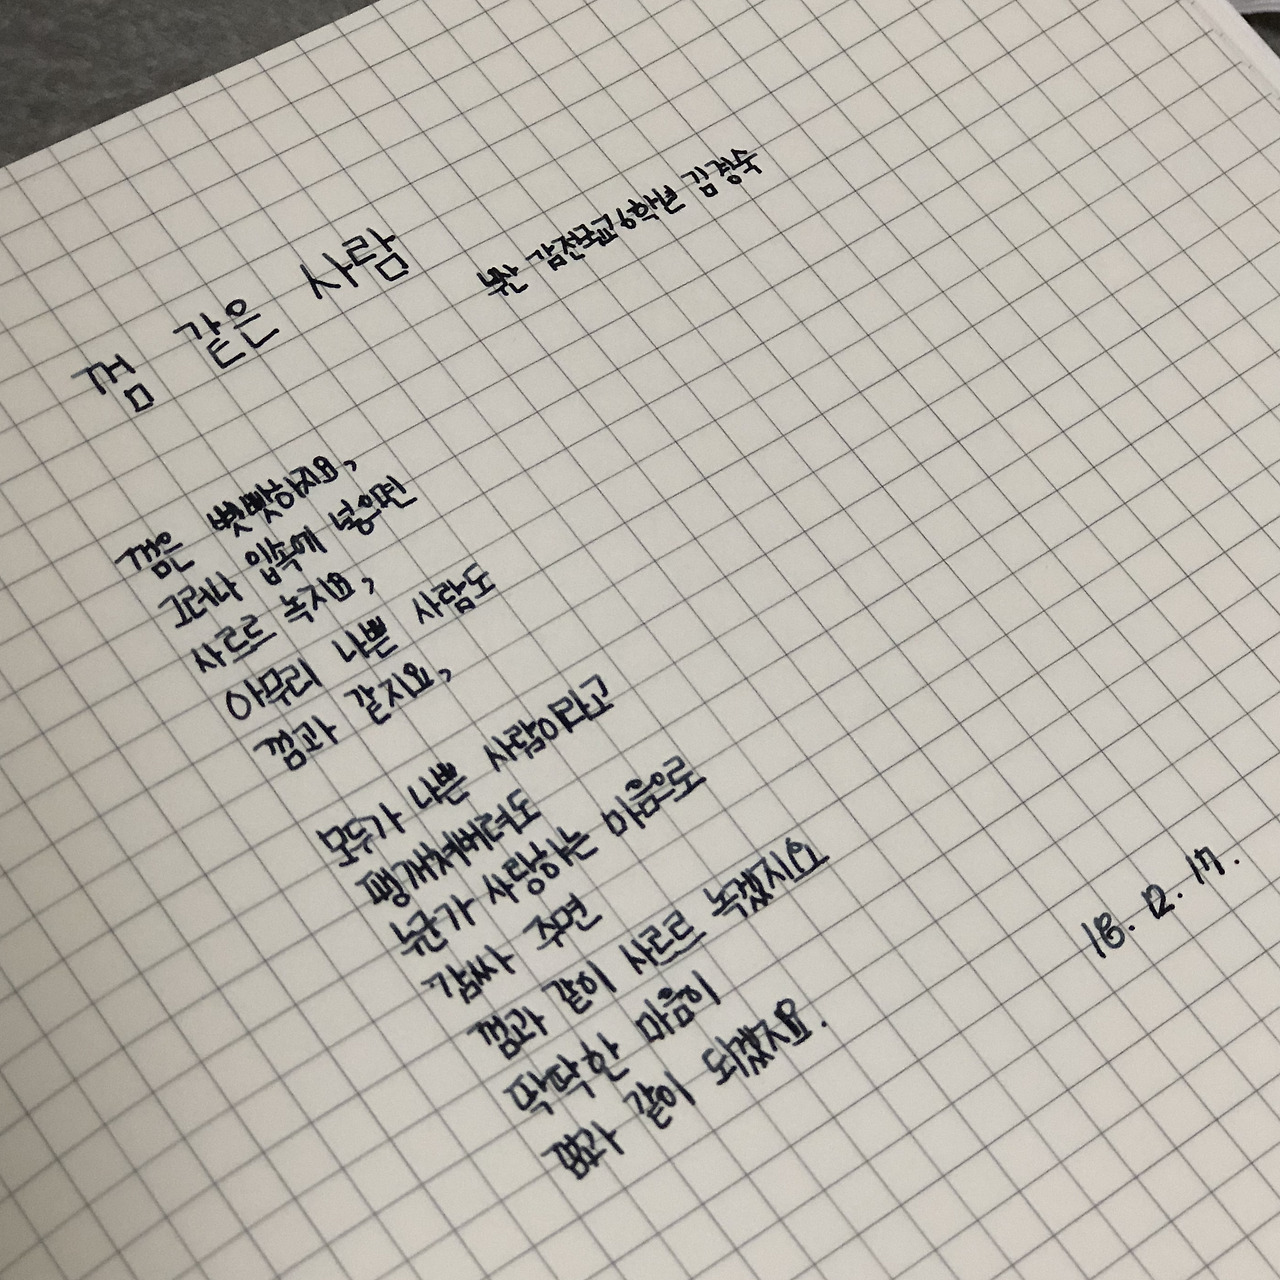 껌 같은 사람
부산 감전국교 6학년 김경숙
껌은 뻣뻣하지요,
그러나 입속에 넣으면
사르르 녹지요,
아무리 나쁜 사람도
껌과 같지요,
모두가 나쁜 사람이라고
팽개쳐버려도
누군가 사랑하는 마음으로
감싸 주면
껌과 같이 사르르 녹겠지요
딱딱한 마음이
껌과 같이 되겠지요.
18. 12. 17.